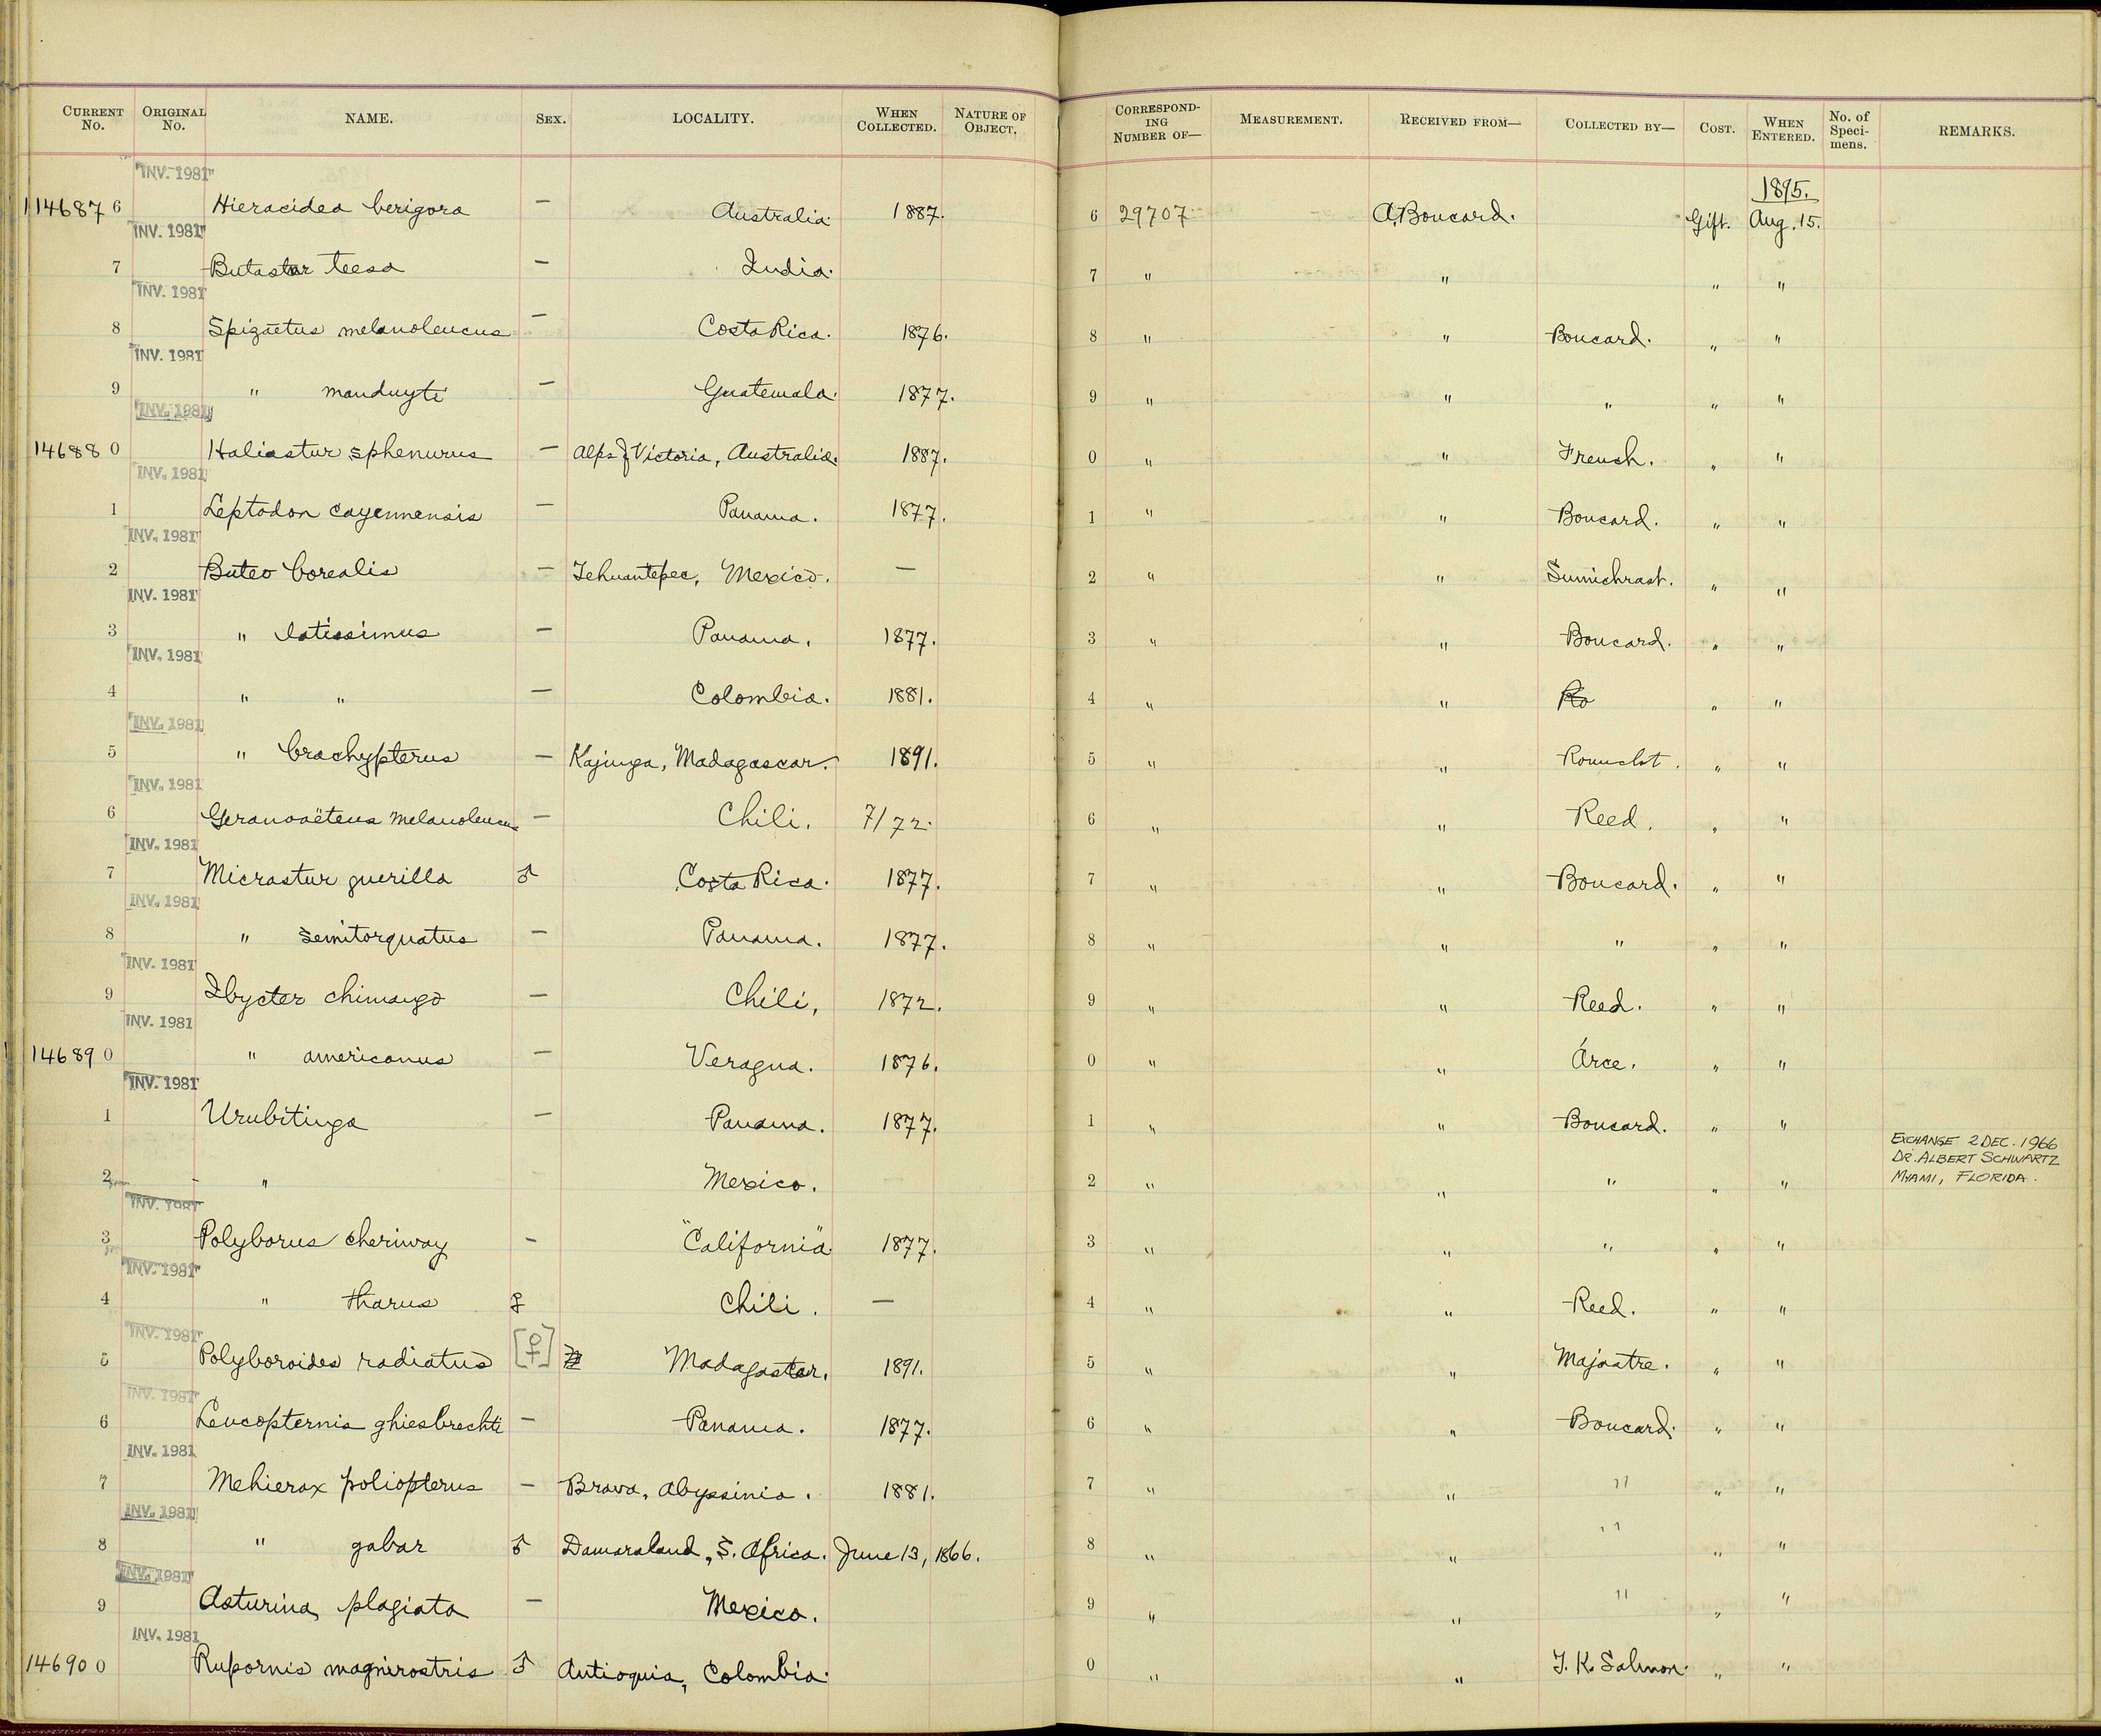 CURRENT No. ORIGINAL No. NAME. SEX. LOCALITY. WHEN COLLECTED. NATURE OF OBJECT. CORRESPONDING NUMBER OF— MEASUREMENT. RECEIVED FROM— COLLECTED BY— COST. WHEN ENTERED. No. of Specimens. REMARKS.
INV. 1981
1895.
114687 6 Hieracidea berigora — Australia. 1887. 6 29707 A. Boucard. Gift. Aug. 15.
INV. 1981
7 Butastur teesa — India. 7 " " " "
INV. 1981
8 Spizaetus melanoleucus — Costa Rica. 1876. 8 " " Boucard. " "
INV. 1981
9 " manduyti — Guatemala. 1877. 9 " " " " "
INV. 1981
14688 0 Haliastur sphenurus — Alps of Victoria, Australia. 1887. 0 " " French. " "
INV. 1981
1 Leptodon cayennensis — Panama. 1877. 1 " " Boucard. " "
INV. 1981
2 Buteo borealis — Tehuantepec, Mexico. — 2 " " Sumichrast. " "
INV. 1981
3 " latissimus — Panama. 1877. 3 " " Boucard. " "
INV. 1981
4 " " — Colombia. 1881. 4 " " Ro " "
INV. 1981
5 " brachypterus — Kajunga, Madagascar. 1891. 5 " " " "
INV. 1981
6 Geranoaëteus melanoleucus — Chili. 7/72. 6 " " Reed. " "
INV. 1981
7 Micrastur guerilla ♂ Costa Rica. 1877. 7 " " Boucard. " "
INV. 1981
8 " semitorquatus — Panama. 1877. 8 " " " " "
INV. 1981
9 Ibycter chimango — Chili, 1872. 9 " " Reed. " "
INV. 1981
14689 0 " americanus — Veragua. 1876. 0 " " Arce. " "
INV. 1981
1 Urubitinga — Panama. 1877. 1 " " Boucard. " "
EXCHANGE 2 DEC. 1966
DR. ALBERT SCHWARTZ
MYAMI, FLORIDA.
2 " Mexico. 2 " " " " "
INV. 1981
3 Polyborus cheriway — "California" 1877. 3 " " " " "
INV. 1981
4 " tharus ♀ Chili. — 4 " " Reed. " "
INV. 1981
5 Polyboroides radiatus [♀] Madagascar. 1891. 5 " " Majastre. " "
INV. 1981
6 Leucopternis ghiesbrechti — Panama. 1877. 6 " " Boucard. " "
INV. 1981
7 Mehierax poliopterus — Brava, Abyssinia. 1881. 7 " " " " "
INV. 1981
8 " gabar ♂ Damaraland, S. Africa. June 13, 1866. 8 " " " " "
INV. 1981
9 Asturina plagiata — Mexico. 9 " " " " "
INV. 1981
14690 0 Rupornis magnirostris ♂ Antioquia, Colombia. 0 " " T. K. Salmon. " "